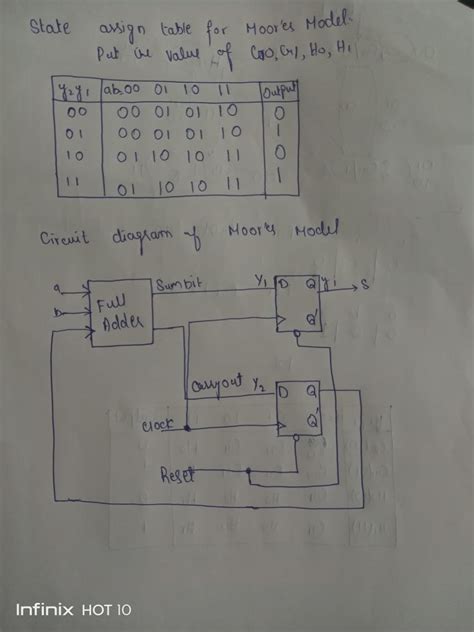 State assign table for Moor's Model.
Put the value of G0, G1, H0, H1
y2y1 ab=00 01 10 11 Output
00 00 01 01 10 0
01 00 01 01 10 1
10 01 10 10 11 0
11 01 10 10 11 1
Circuit diagram of Moor's Model
a
b
Full
Adder
Sumbit
Y1
D Q
Q'
y1
S
Carryout Y2
D Q
Q'
Clock
Reset
Infinix HOT 10